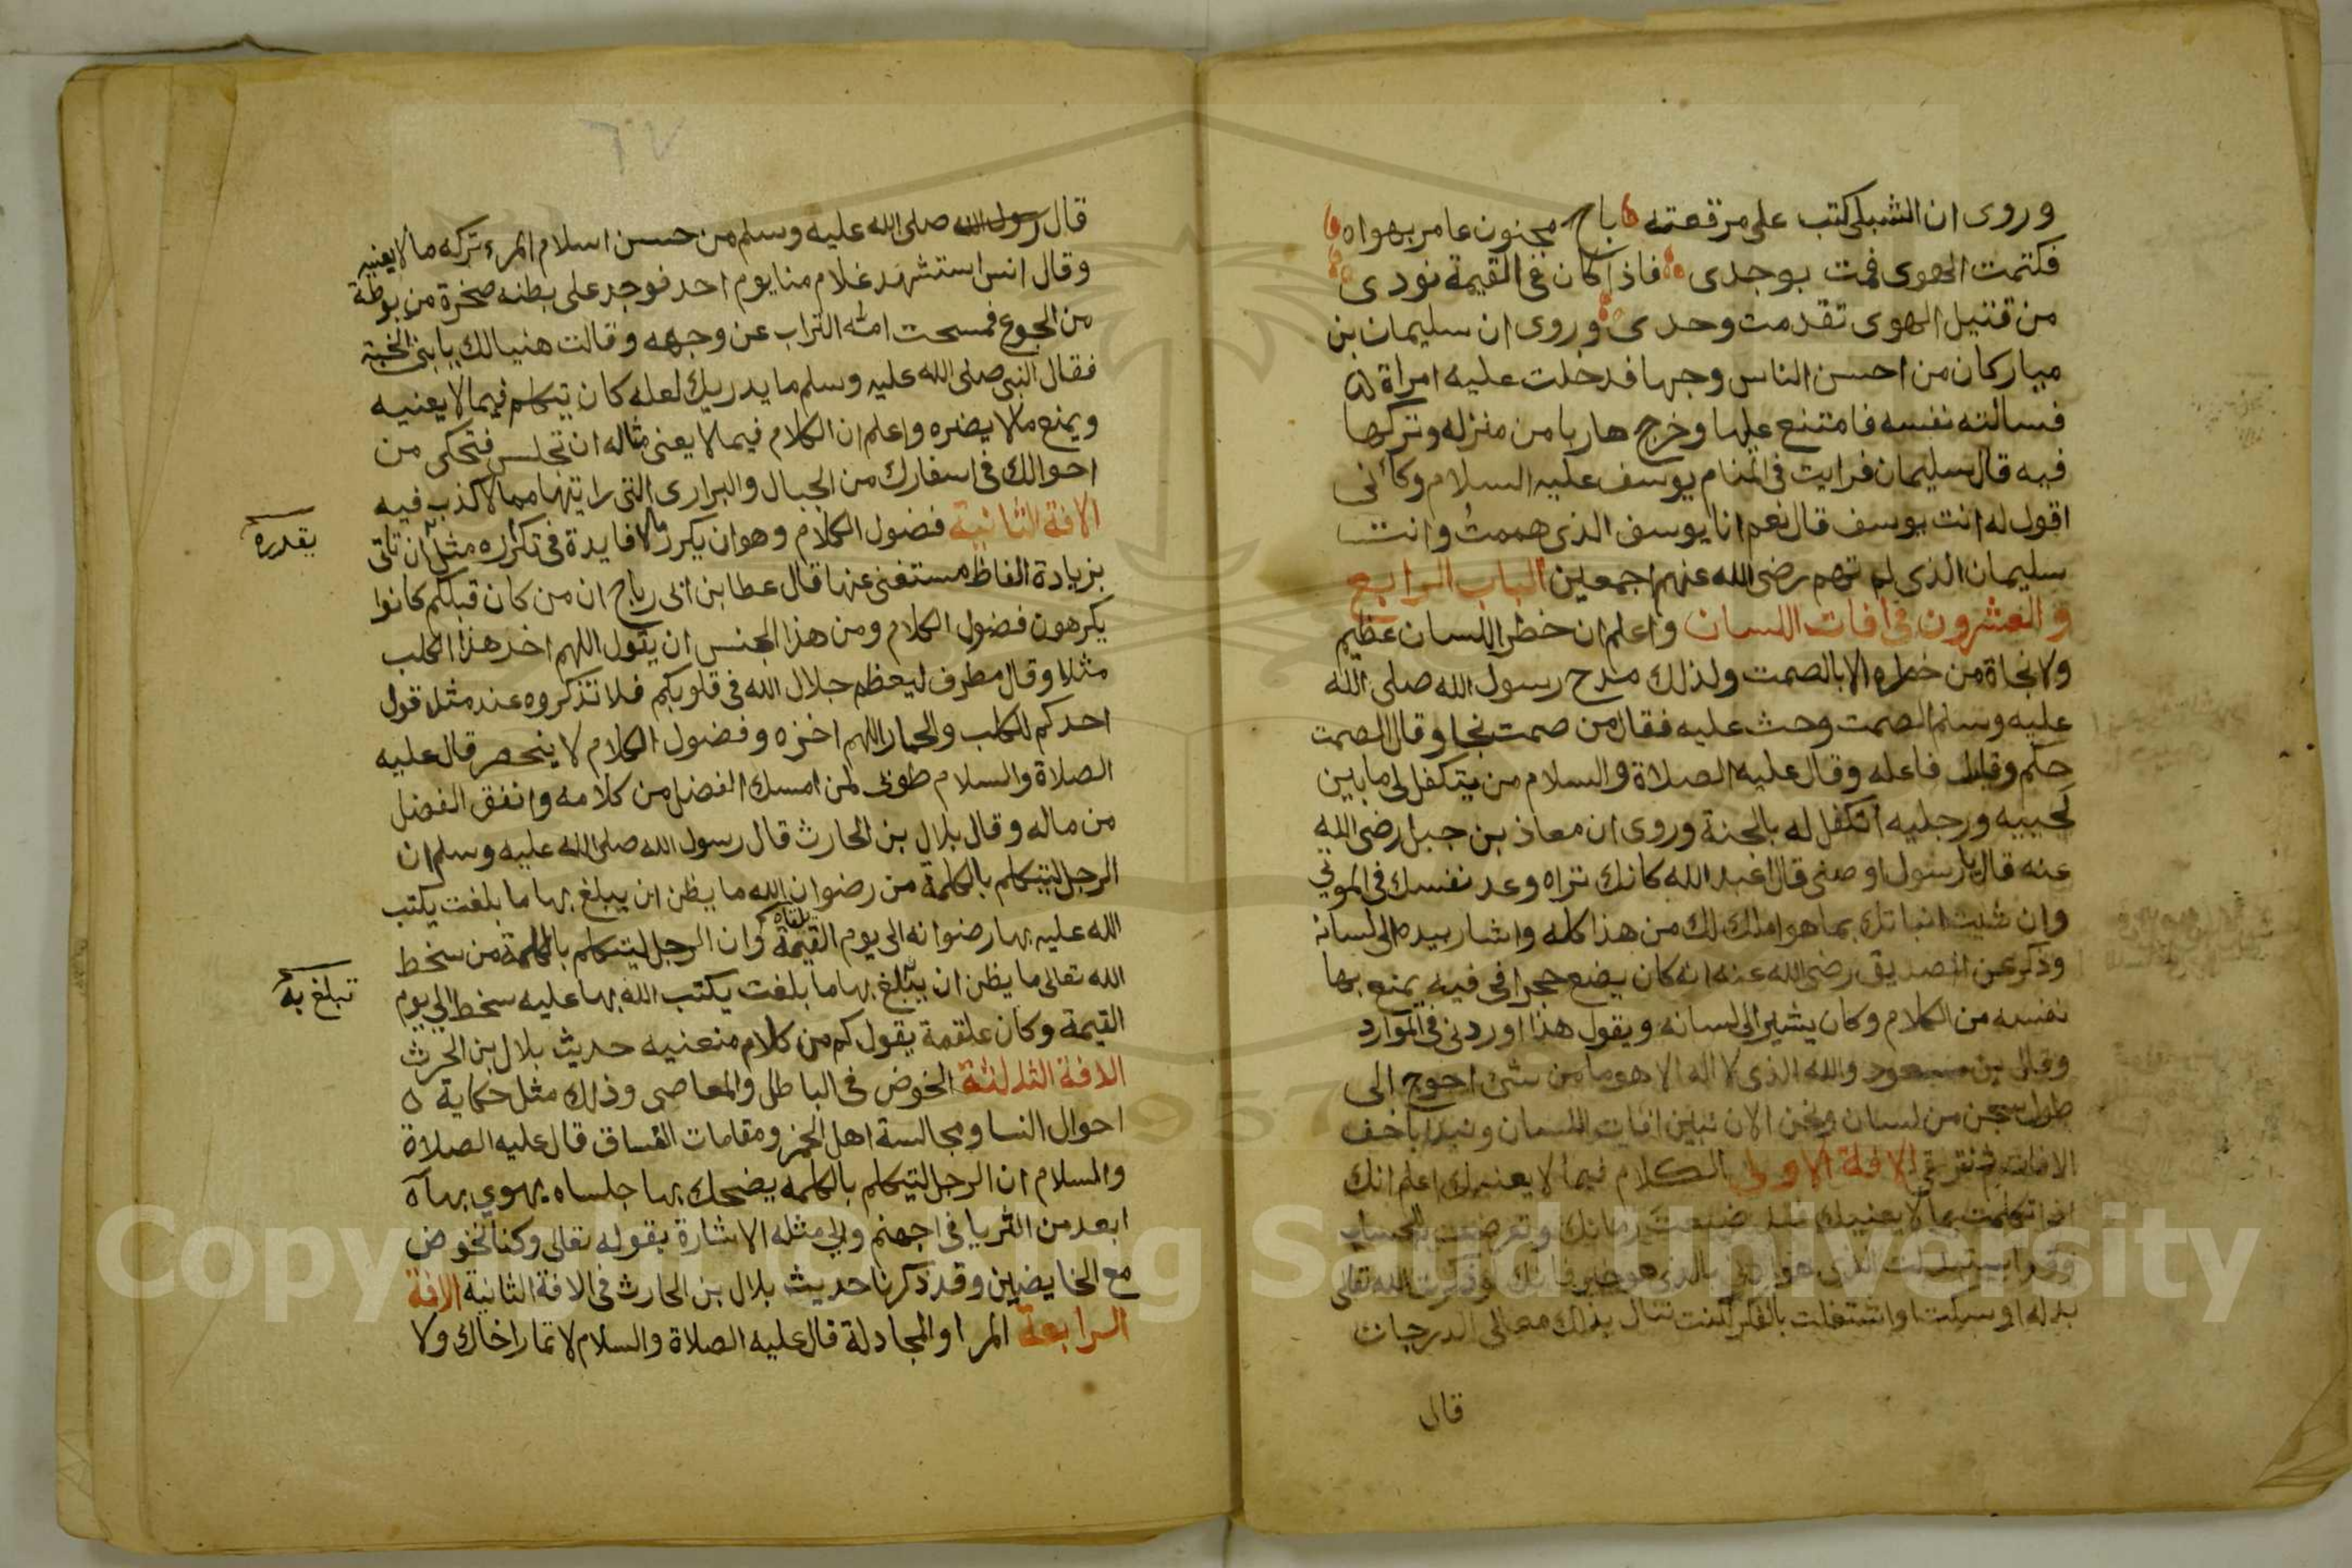 وروى ان الشبلى كتب على مرقعته باح مجنون عامر بهواه
فكتمت الهوى فمت بوجدى فاذا كان فى القيمة نودى
من قتيل الهوى تقدمت وحدى وروى ان سليمان بن
مبار كان من احسن الناس وجها فدخلت عليه امراة
فسالته نفسه فامتنع عليها وخرج هاربا من منزله وتركها
فيه قال سليمان فرايت فى المنام يوسف عليه السلام وكأنى
اقول له انت يوسف قال نعم انا يوسف الذى هممتُ وانت
سليمان الذى لم تهم رضى الله عنهم اجمعين الباب الرابع
والعشرون فى افات اللسان واعلم ان خطر اللسان عظيم
ولا نجاة من خطره الا بالصمت ولذلك مدح رسول الله صلى الله
عليه وسلم الصمت وحث عليه فقال من صمت نجا وقال الصمت
حكم وقليل فاعله وقال عليه الصلاة والسلام من يتكفل لى ما بين
لحييه ورجليه اتكفل له بالجنة وروى ان معاذ بن جبل رضى الله
عنه قال يا رسول اوصنى قال اعبد الله كانك تراه وعد نفسك فى الموتي
وان شيت انباتك بما هو املك لك من هذا كله واشار بيده الى لسانه
وذكر عن الصديق رضى الله عنه انه كان يضع حجرا فى فيه يمنع بها
نفسه من الكلام وكان يشير الى لسانه ويقول هذا اوردنى فى الموارد
وقال بن مسعود والله الذى لا اله الا هو ما من شئ احوج الى
طول سجن من لسان ونحن الان نبين افات اللسان ونبدا باخف
الافات ثم نترقى الافة الاولى الكلام فيما لا يعنيك اعلم انك
اذا تكلمت بما لا يعنيك فقد ضيعت زمانك وتعرضت للحساب
استبدلت الذى هو ادنى بالذى هو خير فانك لو ذكرت الله تعالى
بدله او سكت او اشتغلت بالفكر لكنت تنال بذلك معالى الدرجات
قال
٦٧
قال رسول الله صلى الله عليه وسلم من حسن اسلام المرء تركه ما لا يعنيه
وقال انس استشهد غلام منا يوم احد فوجد على بطنه صخرة مربوطة
من الجوع فمسحت امه التراب عن وجهه وقالت هنيا لك يا بنى الجنة
فقال النبى صلى الله عليه وسلم ما يدريك لعله كان يتكلم فيما لا يعنيه
ويمنع ما لا يضره واعلم ان الكلام فيما لا يعنى مثاله ان تجلس فتحكى من
احوالك فى اسفارك من الجبال والبرارى التى رايتها مما لا كذب فيه
الافة الثانية فضول الكلام وهو ان يكرر ما لا فايدة فى تكراره مثل ان تاتى
يقدره
بزيادة الفاظ مستغنى عنها قال عطا بن ابى رباح ان من كان قبلكم كانوا
يكرهون فضول الكلام ومن هذا الجنس ان يقول اللهم اخز هذا الكلب
مثلا وقال مطرف ليعظم جلال الله فى قلوبكم فلا تذكروه عند مثل قول
احدكم للكلب والحمار اللهم اخزه وفضول الكلام لا ينحصر قال عليه
الصلاة والسلام طوبى لمن امسك الفضل من كلامه وانفق الفضل
من ماله وقال بلال بن الحارث قال رسول الله صلى الله عليه وسلم ان
الرجل ليتكلم بالكلمة من رضوان الله ما يظن ان يبلغ بها ما بلغت يكتب
الله عليه بها رضوانه الى يوم القيمة وان الرجل ليتكلم بالكلمة من سخط
يلقاه
الله تعالى ما يظن ان يبلغ بها ما بلغت يكتب الله بها عليه سخط الى يوم
تبلغ به
القيمة وكان علقمة يقول كم من كلام منعنيه حديث بلال بن الحرث
الافة الثالثة الخوض فى الباطل والمعاصى وذلك مثل حكاية
احوال النسا ومجالسة اهل الخمر ومقامات الفساق قال عليه الصلاة
والسلام ان الرجل ليتكلم بالكلمه يضحك بها جلساه يهوي بها
ابعد من الثريا فى جهنم والى مثله الاشارة بقوله تعالى وكنا نخوض
مع الخايضين وقد ذكرنا حديث بلال بن الحارث فى الافة الثانية الافة
الرابعة المرا والمجادلة قال عليه الصلاة والسلام لا تمار اخاك ولا
Copyright © King Saud University
1957